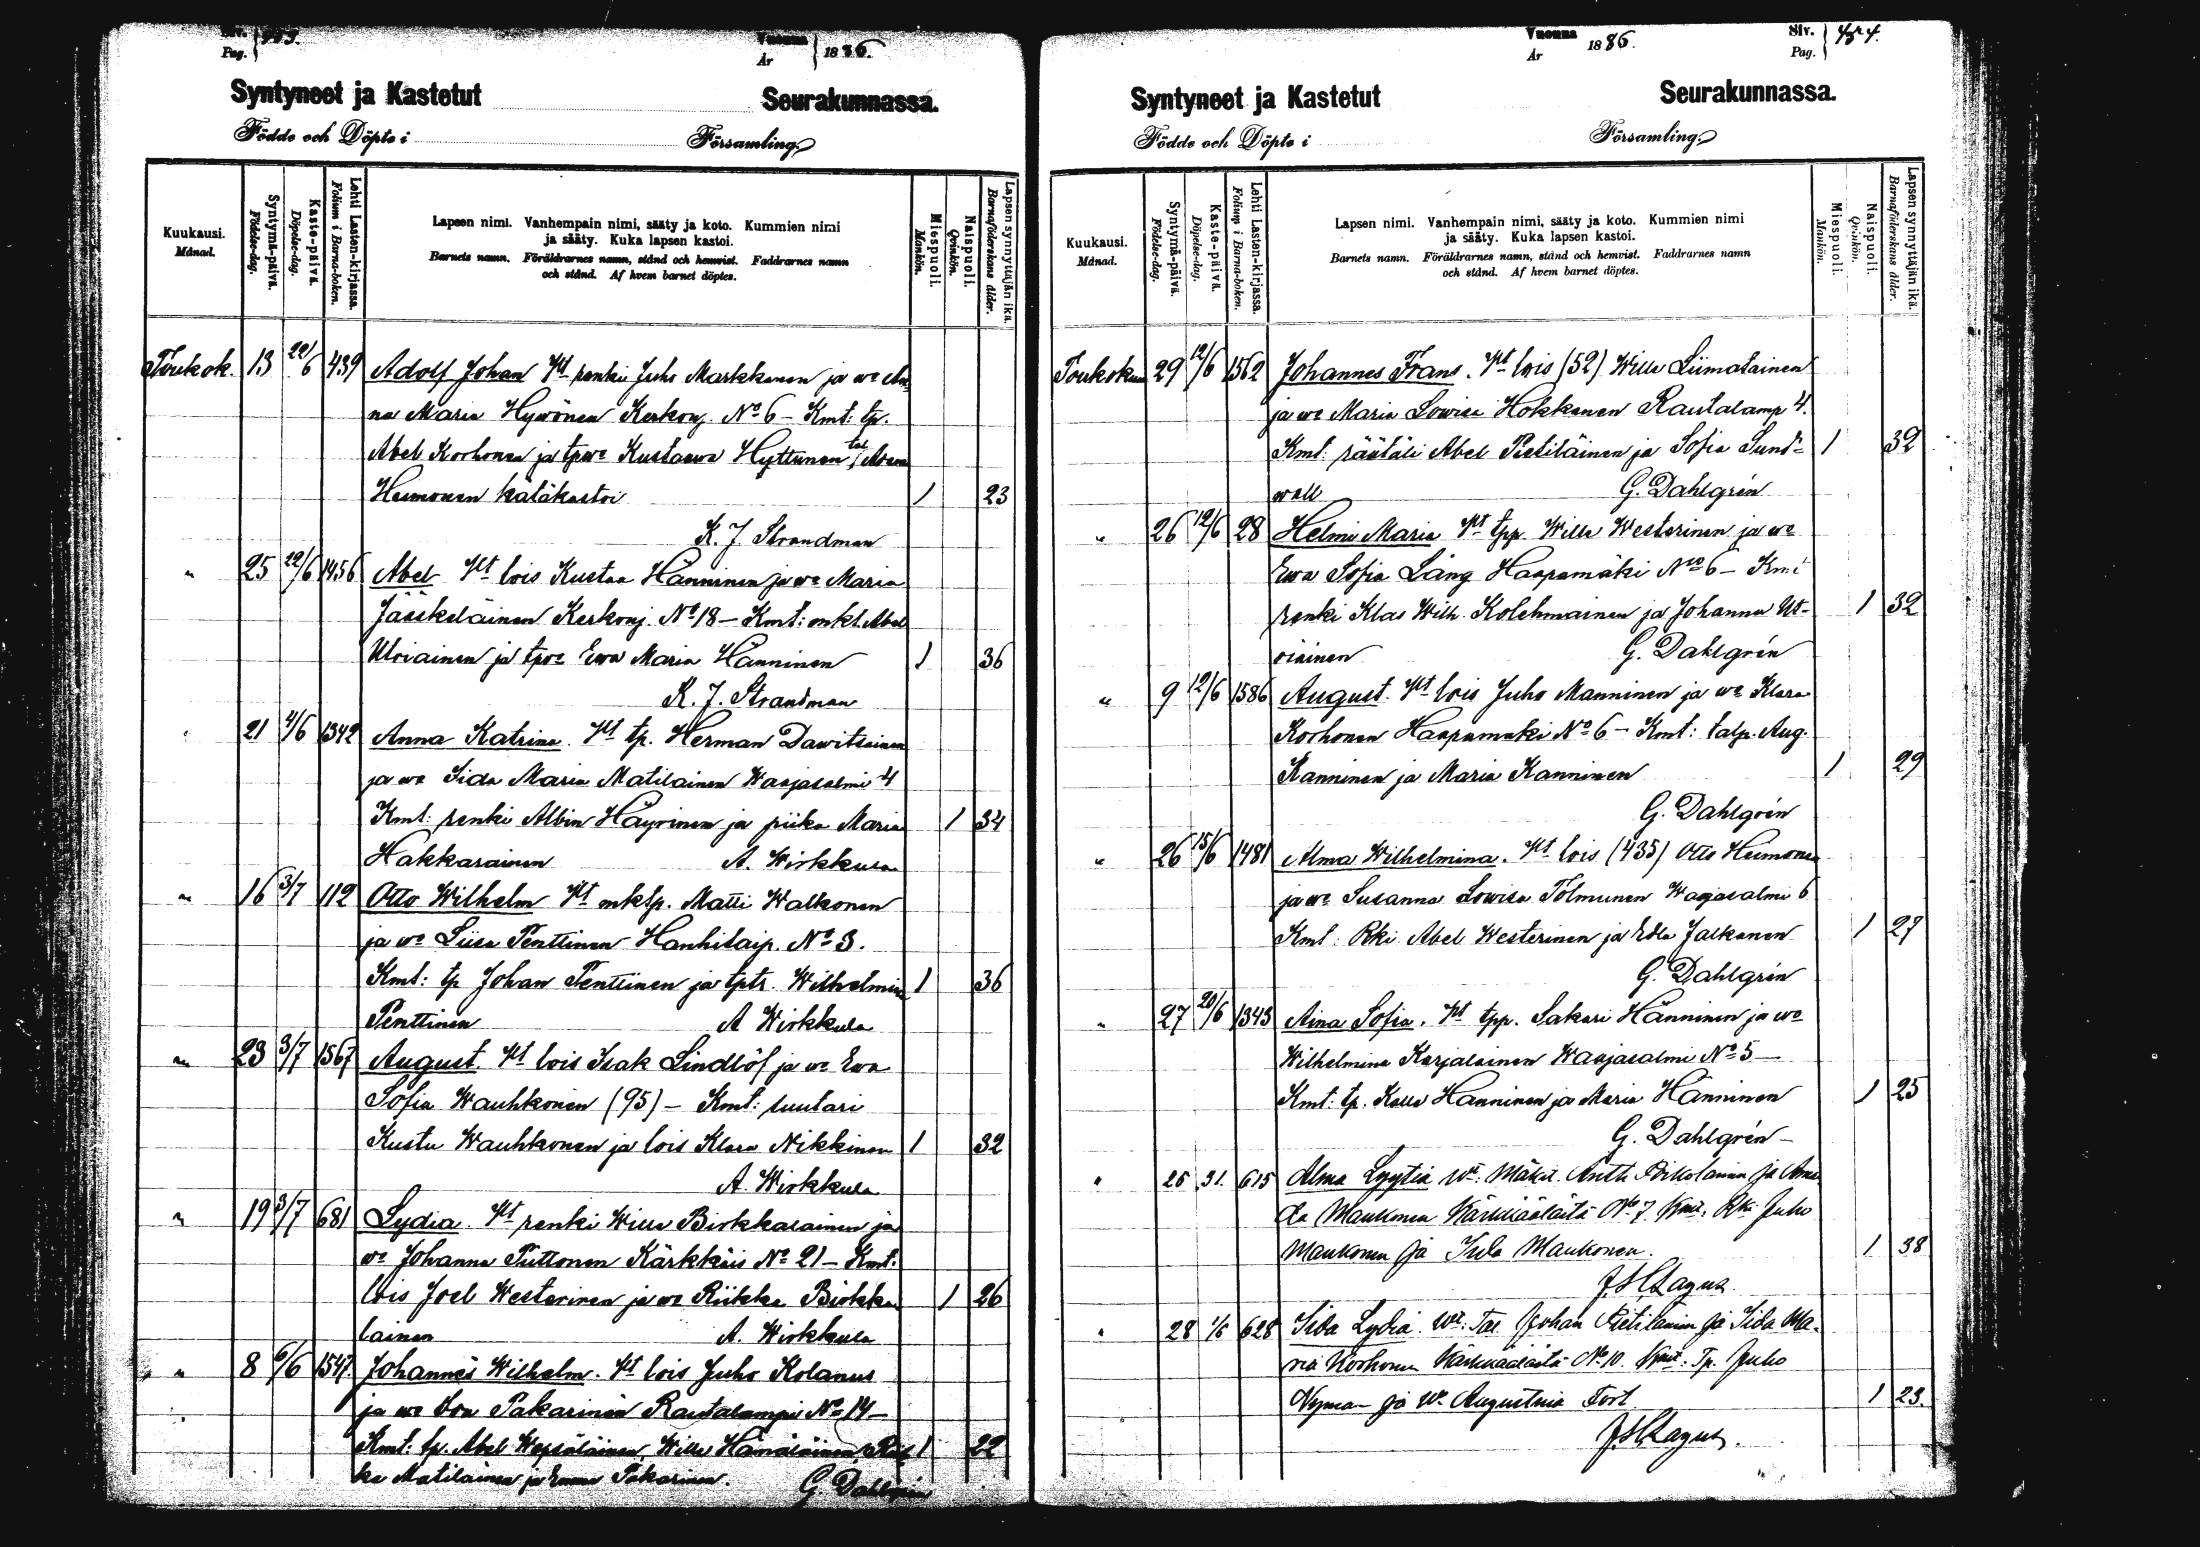 Pag.
Vuonna
År
1886.
Syntyneet ja Kastetut Seurakunnassa.
Födde och Döpte i Församling.
Kuukausi.
Månad.
Syntymä-päivä.
Födelse-dag.
Kaste-päivä.
Döpelse-dag.
Lehti Lasten-kirjassa.
Folium i Barna-boken.
Lapsen nimi. Vanhempain nimi, sääty ja koto. Kummien nimi
ja sääty. Kuka lapsen kastoi.
Barnets namn. Föräldrarnes namn, stånd och hemvist. Faddrarnes namn
och stånd. Af hvem barnet döptes.
Miespuoli.
Mankön.
Naispuoli.
Qvinkön.
Lapsen synnyttäjän ikä.
Barnaföderskans ålder.
Toukok. 13 22/6 439 Adolf Johan Vt renki Juho Markkanen ja wo An
na Maria Hywönen Kerkonj. No 6 - Kmt: tp.
Abel Korhonen ja tpwo Kustaawa Hyttunen
Heimonen hätäkastoi 1 23
K. J Strandman
" 25 22/6 1456 Abel Vt lois Kustaa Hänninen ja wo Maria
Jääskeläinen Kerkonj. No 18 - Kmt: mkt. Abel
Utriainen ja tpwo Ewa Maria Hänninen 1 36
K. J. Strandman
" 21 4/6 1342 Anna Katrina. Vt tp. Herman Dawitsainen
ja wo Iida Maria Matilainen Waajasalmi 4
Kmt: renki Albin Häyrinen ja piika Maria 1 34
Hakkarainen A. Wirkkula
" 16 3/7 112 Otto Wilhelm Vt mktp. Matti Walkonen
ja wo Liisa Penttinen Hanhitaip. No 3.
Kmt: tp Johan Penttinen ja tptr. Wilhelmina 1 36
Penttinen A Wirkkula
" 23 3/7 1567 August. Vt lois Isak Lindlöf ja wo Ewa
Sofia Wauhkonen (95) - Kmt: suutari
Kustu Wauhkonen ja lois Klara Nikkinen 1 32
A. Wirkkula
" 19 3/7 681 Lydia. Vt renki Wille Pirkkalainen ja
wo Johanna Puttonen Kärkkäis No 21 - Kmt:
lois Joel Westerinen ja wo Riikka Pirkka 1 26
lainen A. Wirkkula
" 8 6/6 1547. Johannes Wilhelm. Vt lois Juho Kolanus
ja wo Ewa Pakarinen Rautalampi No 14 -
Kmt: tp. Abel Wepsäläinen, Wille Hämäläinen, Riik 1 22
ka Matilainen ja Emma Pakarinen. G. Dahlgrén
Vuonna
År
1886.
Siv.
Pag.
454.
Syntyneet ja Kastetut Seurakunnassa.
Födde och Döpte i Församling.
Kuukausi.
Månad.
Syntymä-päivä.
Födelse-dag.
Kaste-päivä.
Döpelse-dag.
Lehti Lasten-kirjassa.
Folium i Barna-boken.
Lapsen nimi. Vanhempain nimi, sääty ja koto. Kummien nimi
ja sääty. Kuka lapsen kastoi.
Barnets namn. Föräldrarnes namn, stånd och hemvist. Faddrarnes namn
och stånd. Af hvem barnet döptes.
Miespuoli.
Mankön.
Naispuoli.
Qvinkön.
Lapsen synnyttäjän ikä.
Barnaföderskans ålder.
Toukokuu 29 12/6 1562 Johannes Frans. Vt lois (52) Wille Liimatainen
ja wo Maria Lowisa Hokkanen Rautalamp 4.
Kmt: räätäli Abel Pietiläinen ja Sofia Sund- 1 32
wall G. Dahlgrén
" 26 12/6 28 Helmi Maria Vt tpp. Wille Westerinen ja wo
Ewa Sofia Lång Haapamäki No 6 - Kmt
renki Klas Wilh. Kolehmainen ja Johanna Ut- 1 32
riainen G. Dahlgrén
" 9 12/6 1586 August. Vt lois Juho Manninen ja wo Klara
Korhonen Haapamäki No 6 - Kmt: talp. Aug.
Kanninen ja Maria Kanninen 1 29
G. Dahlgrén
" 26 15/6 1481 Alma Wilhelmina. Vt lois (435) Otto Heimonen
ja wo Susanna Lowisa Tolmunen Waajasalmi 6
Kmt: Rki. Abel Westerinen ja Edla Jalkanen 1 27
G. Dahlgrén
" 27 20/6 1343 Aina Sofia. Vt tpp. Sakari Hänninen ja wo
Wilhelmina Karjalainen Waajasalmi No 5 -
Kmt: tp. Kalle Hänninen ja Maria Hänninen 1 25
G. Dahlgrén -
" 25 31. 615 Alma Lyytia Wt. Mäkit. Antti ja Aman
da Maukonen Kärkkäälältä No 7. Kmt. Rki Juho
Maukonen ja Iida Maukonen. 1 38
J. H. Lagus.
" 28 1/6 628 Iida Lydia. Wt. Tal. Johan Pietiläinen ja Iida Ma-
ria Korhonen Kärkkäälältä No 10. Kmt. Tp. Juho
Nyman ja Wo Augustina Fort 1 23.
J. H. Lagus.